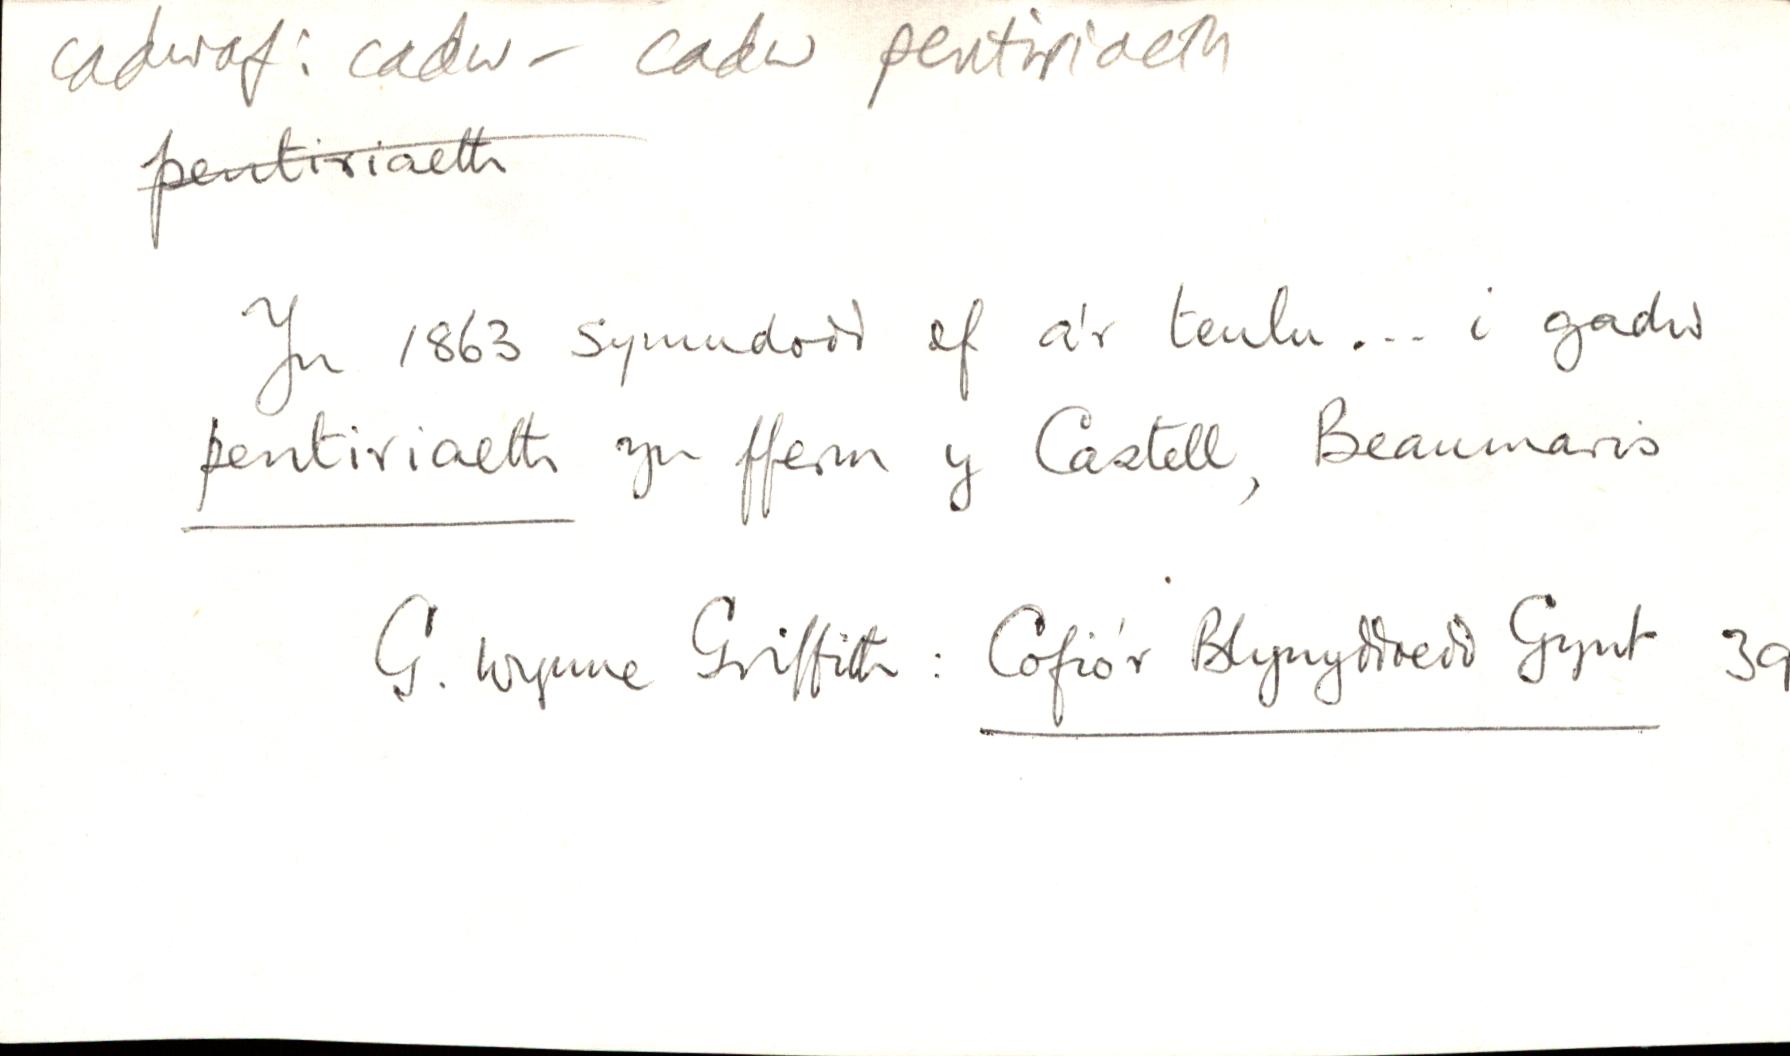 cadwaf: cadw – cadw pentiriaeth
pentiriaeth
Yn 1863 symudodd ef a'r teulu... i gadw
pentiriaeth yn fferm y Castell, Beaumaris
G. Wynne Griffith: Cofio'r Blynyddoedd Gynt 39